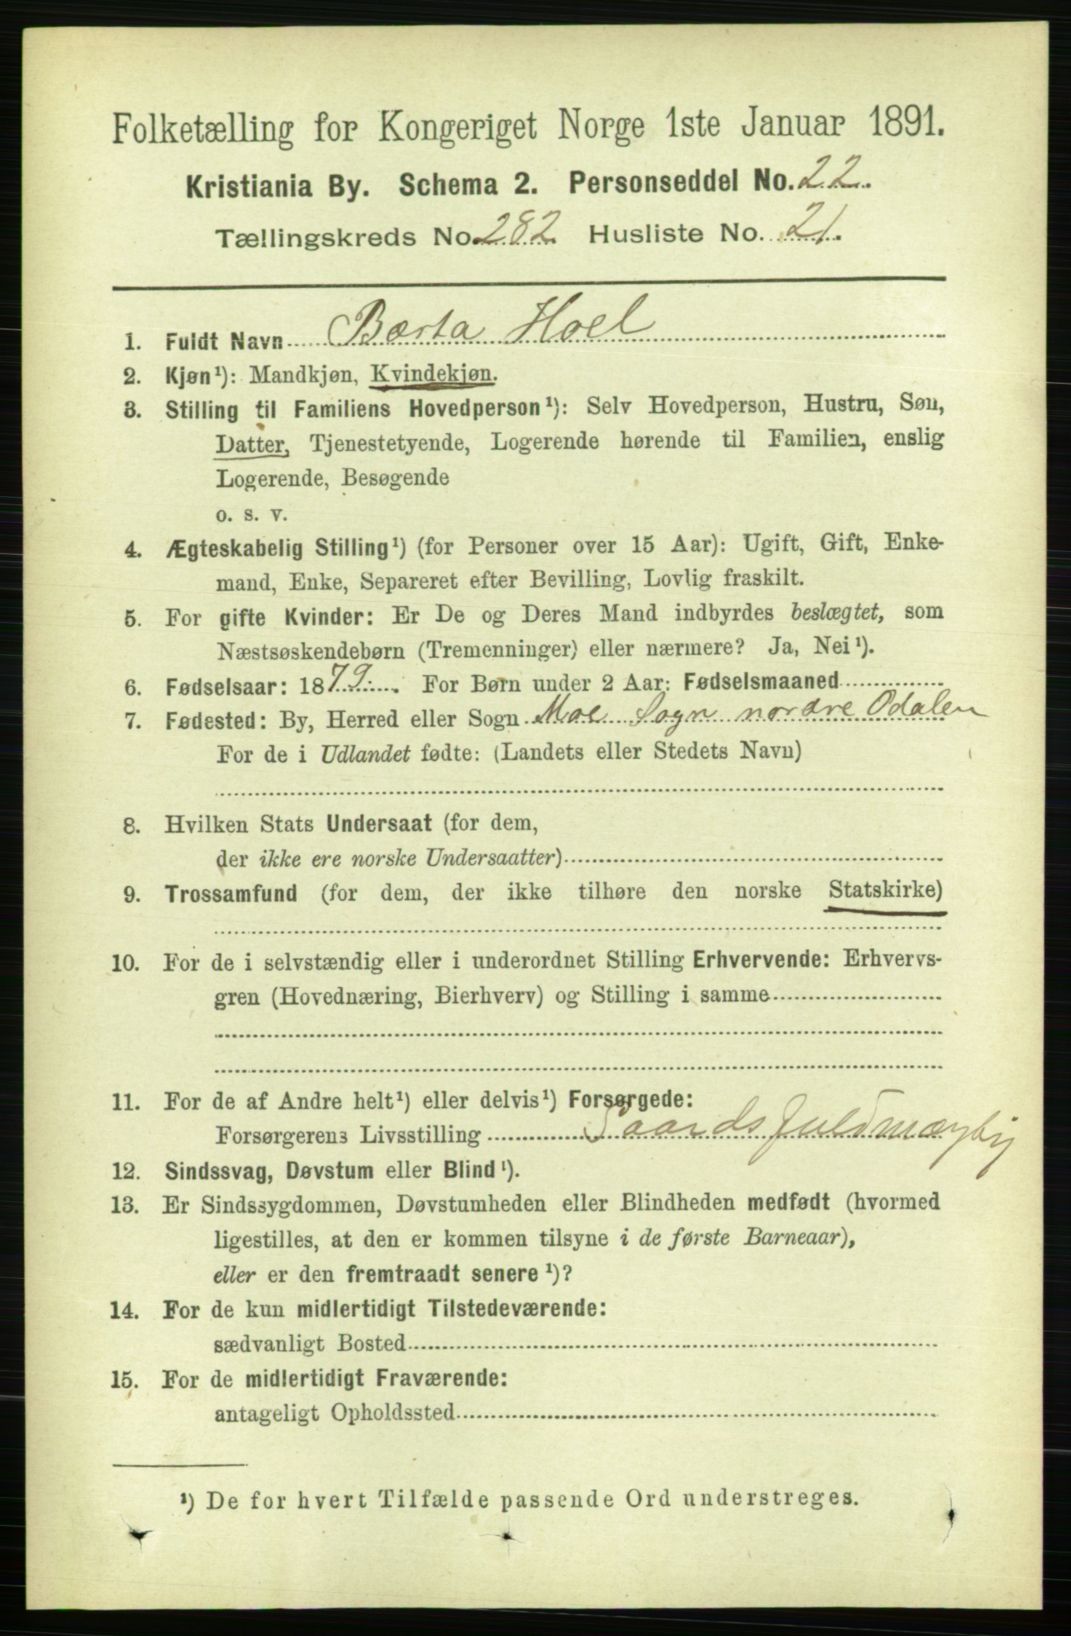 Folketælling for Kongeriget Norge 1ste Januar 1891.
Kristiania By. Schema 2. Personseddel No. 22.
Tællingskreds No. 282 Husliste No. 21.
1. Fuldt Navn Bærta Hoel
2. Kjøn¹): Mandkjøn, Kvindekjøn.
3. Stilling til Familiens Hovedperson¹): Selv Hovedperson, Hustru, Søn,
Datter, Tjenestetyende, Logerende hørende til Familien, enslig
Logerende, Besøgende
o. s. v.
4. Ægteskabelig Stilling¹) (for Personer over 15 Aar): Ugift, Gift, Enke-
mand, Enke, Separeret efter Bevilling, Lovlig fraskilt.
5. For gifte Kvinder: Er De og Deres Mand indbyrdes beslægtet, som
Næstsøskendebørn (Tremenninger) eller nærmere? Ja, Nei¹).
6. Fødselsaar: 1879. For Børn under 2 Aar: Fødselsmaaned
7. Fødested: By, Herred eller Sogn Moe Sogn nordre Odalen
For de i Udlandet fødte: (Landets eller Stedets Navn)
8. Hvilken Stats Undersaat (for dem,
der ikke ere norske Undersaatter)
9. Trossamfund (for dem, der ikke tilhøre den norske Statskirke)
10. For de i selvstændig eller i underordnet Stilling Erhvervende: Erhvervs-
gren (Hovednæring, Bierhverv) og Stilling i samme
11. For de af Andre helt¹) eller delvis¹) Forsørgede:
Forsørgerens Livsstilling
12. Sindssvag, Døvstum eller Blind¹).
13. Er Sindssygdommen, Døvstumheden eller Blindheden medfødt (hvormed
ligestilles, at den er kommen tilsyne i de første Barneaar),
eller er den fremtraadt senere¹)?
14. For de kun midlertidigt Tilstedeværende:
sædvanligt Bosted
15. For de midlertidigt Fraværende:
antageligt Opholdssted
¹) De for hvert Tilfælde passende Ord understreges.